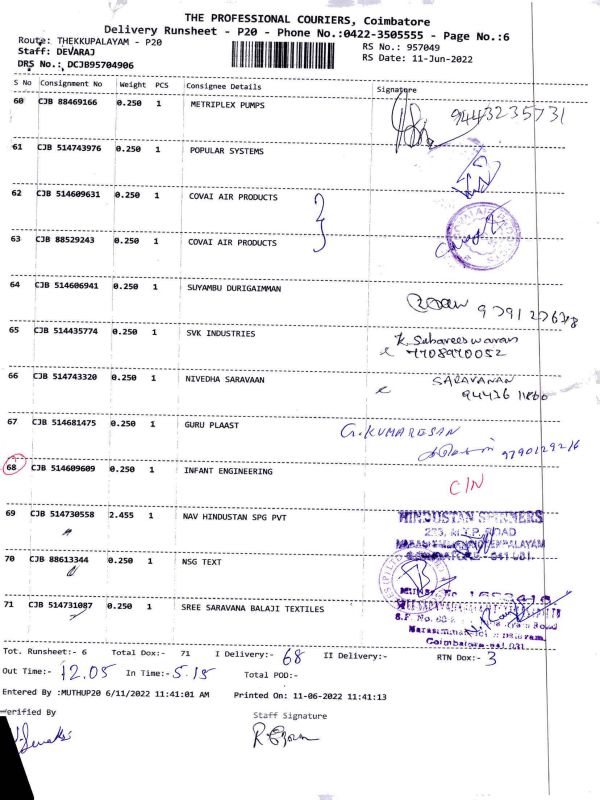 THE PROFESSIONAL COURIERS, Coimbatore
Delivery Runsheet - P20 - Phone No.:0422-3505555 - Page No.:6
Route: THEKKUPALAYAM - P20
RS No.: 957049
Staff: DEVARAJ
RS Date: 11-Jun-2022
DRS No.: DCJB95704906
S No Consignment No Weight PCS Consignee Details Signature
60 CJB 88469166 0.250 1 METRIPLEX PUMPS 9443235731
61 CJB 514743976 0.250 1 POPULAR SYSTEMS
62 CJB 514609631 0.250 1 COVAI AIR PRODUCTS
63 CJB 88529243 0.250 1 COVAI AIR PRODUCTS
64 CJB 514606941 0.250 1 SUYAMBU DURIGAIMMAN
65 CJB 514435774 0.250 1 SVK INDUSTRIES K. Sabareeswaran
7708970052
66 CJB 514743320 0.250 1 NIVEDHA SARAVAAN SARAVANAN
67 CJB 514681475 0.250 1 GURU PLAAST G.KUMARESAN
9790129216
68 CJB 514609609 0.250 1 INFANT ENGINEERING C/N
69 CJB 514730558 2.455 1 NAV HINDUSTAN SPG PVT HINDUSTAN SPINNERS
ROAD
70 CJB 88613344 0.250 1 NSG TEXT
71 CJB 514731087 0.250 1 SREE SARAVANA BALAJI TEXTILES
Tot. Runsheet:- 6 Total Dox:- 71 I Delivery:- 68 II Delivery:- RTN Dox:- 3
Out Time:- 12.05 In Time:- 5.15 Total POD:-
Entered By :MUTHUP20 6/11/2022 11:41:01 AM Printed On: 11-06-2022 11:41:13
Verified By
Staff Signature